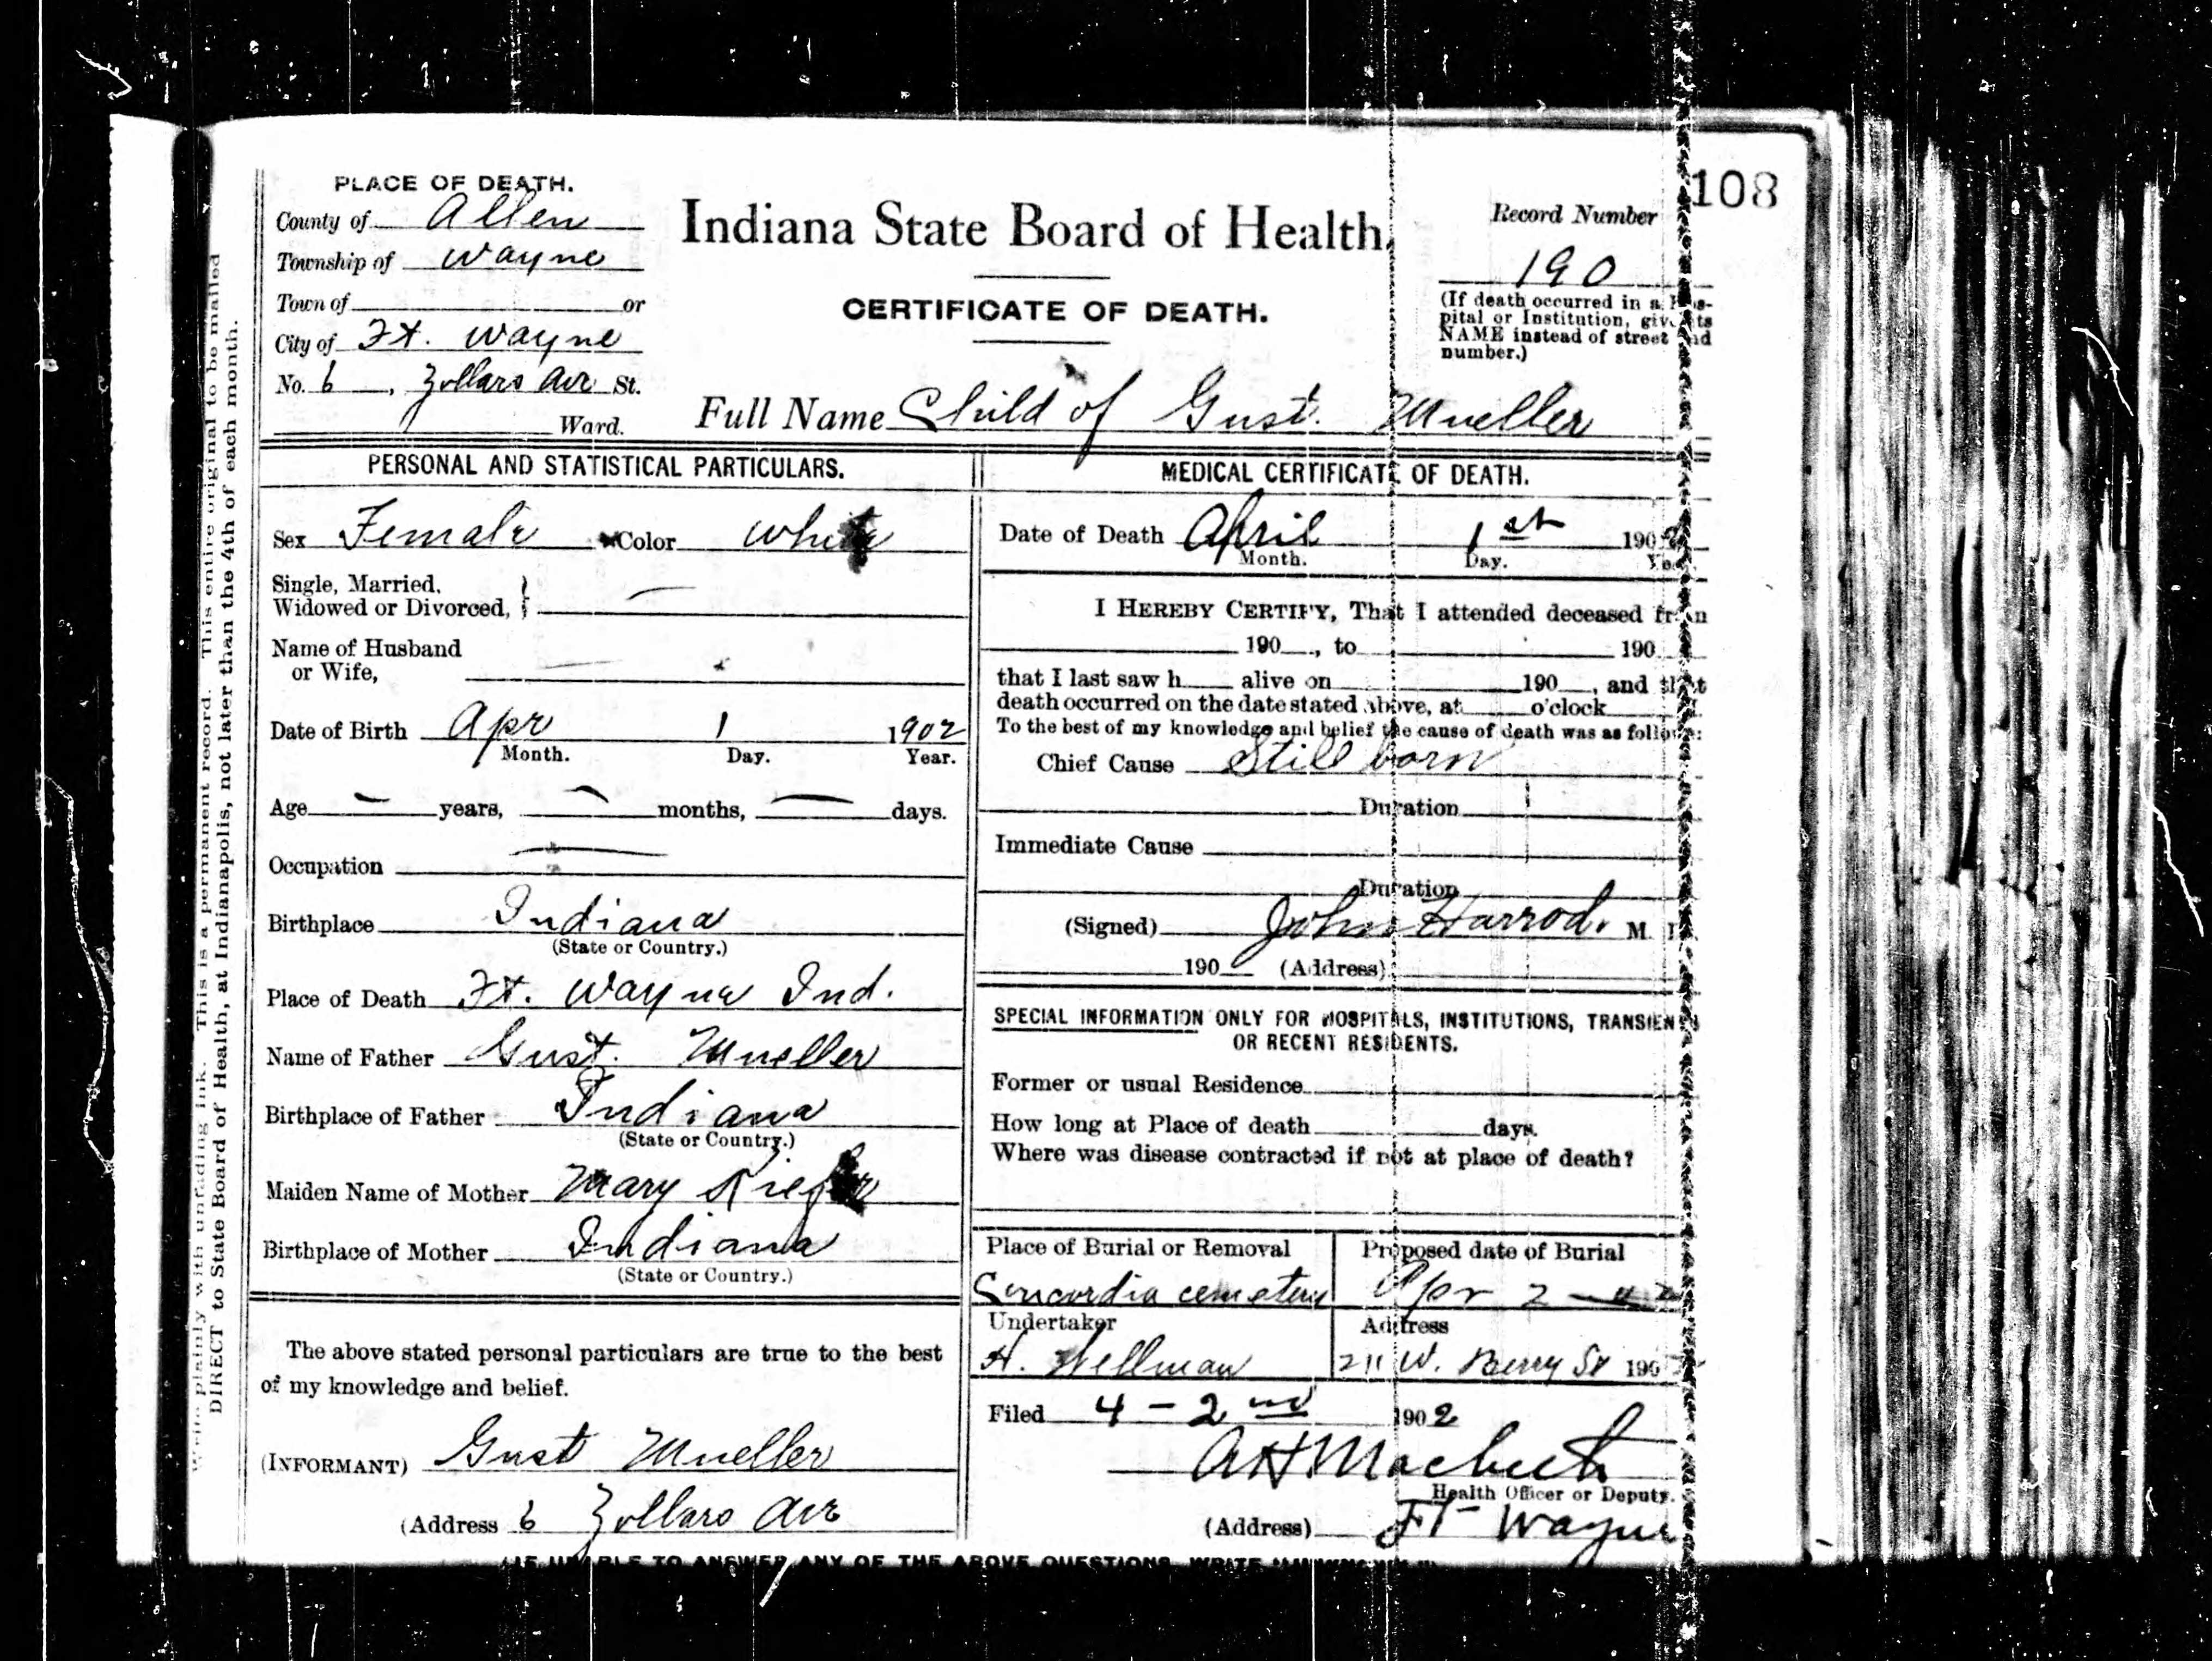 108
PLACE OF DEATH.
County of Allen
Township of Wayne
Town of or
City of Ft. Wayne
No. 6, Zollars Ave St.
Ward.
Indiana State Board of Health.
CERTIFICATE OF DEATH.
Record Number
190
(If death occurred in a Hos-
pital or Institution, give its
NAME instead of street and
number.)
Full Name Child of Gust. Mueller
Write plainly with unfading ink. This is a permanent record. This entire original to be mailed
DIRECT to State Board of Health, at Indianapolis, not later than the 4th of each month.
PERSONAL AND STATISTICAL PARTICULARS.
Sex Female Color White
Single, Married,
Widowed or Divorced,
Name of Husband
or Wife,
Date of Birth Apr 1 1902
Month. Day. Year.
Age — years, — months, — days.
Occupation —
Birthplace Indiana
(State or Country.)
Place of Death Ft. Wayne Ind.
Name of Father Gust. Mueller
Birthplace of Father Indiana
(State or Country.)
Maiden Name of Mother Mary
Birthplace of Mother Indiana
(State or Country.)
The above stated personal particulars are true to the best
of my knowledge and belief.
(INFORMANT) Gust Mueller
(Address 6 Zollars Ave
MEDICAL CERTIFICATE OF DEATH.
Date of Death April 1st 1902
Month. Day. Year.
I HEREBY CERTIFY, That I attended deceased from
190 , to 190
that I last saw h alive on 190 , and that
death occurred on the date stated above, at o'clock M.
To the best of my knowledge and belief the cause of death was as follows:
Chief Cause Still born
Duration
Immediate Cause
Duration
(Signed) John Harrod. M. D.
190 (Address)
SPECIAL INFORMATION ONLY FOR HOSPITALS, INSTITUTIONS, TRANSIENTS
OR RECENT RESIDENTS.
Former or usual Residence
How long at Place of death days.
Where was disease contracted if not at place of death?
Place of Burial or Removal Proposed date of Burial
Concordia cemetery Apr 2
Undertaker Address
H. Wellman 211 W. Berry St 190
Filed 4 - 2nd 1902
A H Macbeth
Health Officer or Deputy.
(Address) Ft Wayne
IF UNABLE TO ANSWER ANY OF THE ABOVE QUESTIONS, WRITE